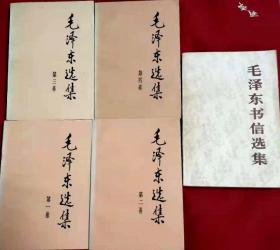 毛泽东选集
第三卷
毛泽东选集
第四卷
毛泽东书信选集
毛泽东选集
第一卷
毛泽东选集
第二卷